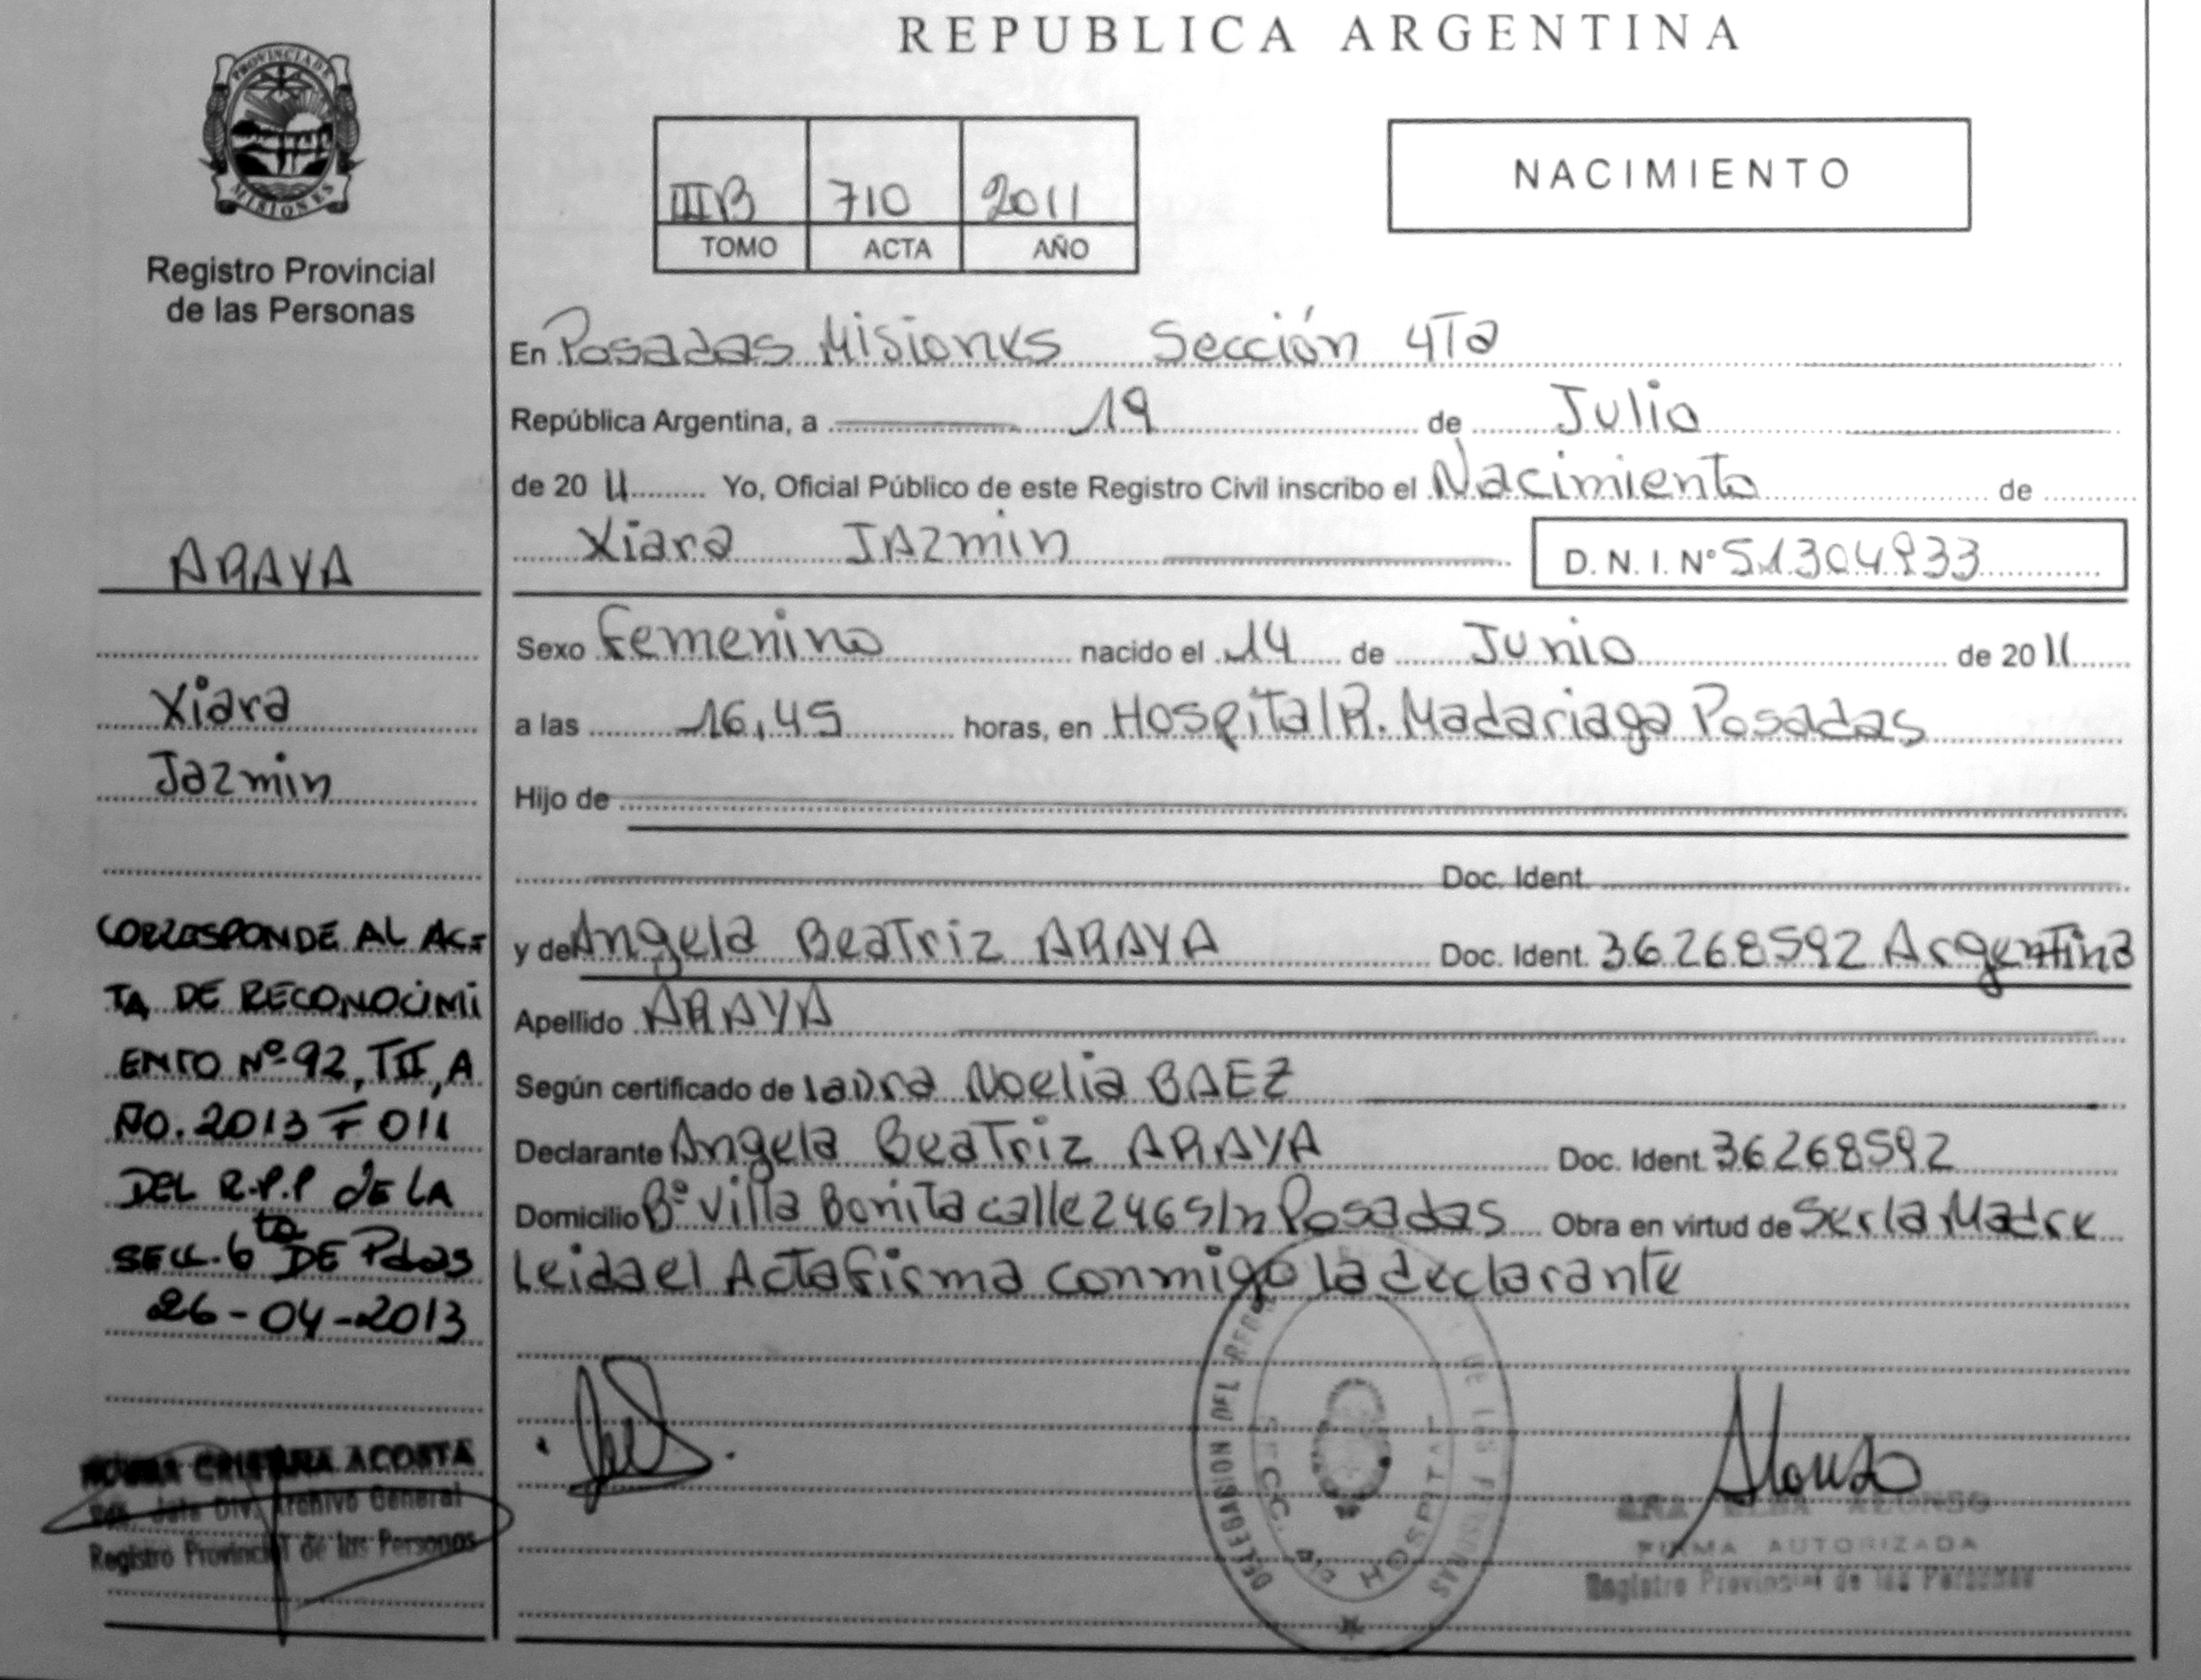 REPUBLICA ARGENTINA
PROVINCIA DE
MISIONES
Registro Provincial
de las Personas
IIIB 710 2011
TOMO ACTA AÑO
NACIMIENTO
En Posadas Misiones Sección 4Ta
República Argentina, a 19 de Julio
de 20 11 Yo, Oficial Público de este Registro Civil inscribo el Nacimiento de
Xiara JAZmin D. N. I. N° 51304933
Sexo Femenino nacido el 14 de Junio de 20 11
a las 16,45 horas, en Hospital R. Madariaga Posadas
Hijo de
Doc. Ident.
y de Angela Beatriz ARAYA Doc. Ident. 36268592 Argentina
Apellido ARAYA
Según certificado de laura Noelia BAEZ
Declarante Angela Beatriz ARAYA Doc. Ident. 36268592
Domicilio B° Villa Bonita calle 246 s/n Posadas Obra en virtud de Ser la Madre
Leida el Acta firma conmigo la declarante
ARAYA
Xiara
Jazmin
CORRESPONDE AL AC=
TA DE RECONOCIMI
ENTO Nº 92, TII, A
ÑO. 2013 F 011
DEL R.P.P de LA
SECC. 6ta DE Pdas
26-04-2013
CRISTINA ACOSTA
Div. Archivo General
Registro Provincial de las Personas
DELEGACION DEL DE LAS PERSONAS
SECC. HOSPITAL
Alonso
SRA ELBA ALONSO
FIRMA AUTORIZADA
Registro Provincial de las Personas